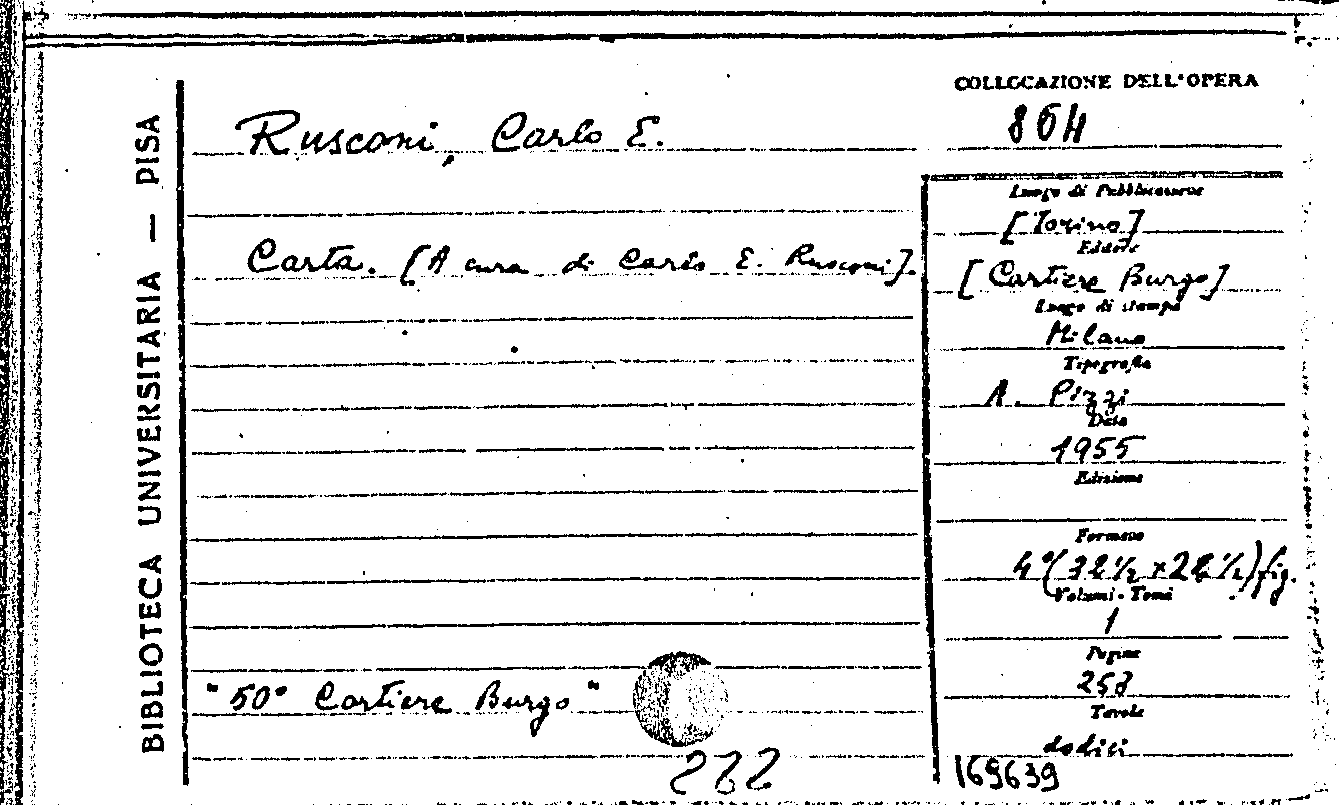 BIBLIOTECA UNIVERSITARIA — PISA
COLLOCAZIONE DELL'OPERA
864
Rusconi, Carlo E.
Carta. [A cura di Carlo E. Rusconi].
Luogo di Pubblicazione
[Torino]
Editore
[Cartiere Burgo]
Luogo di stampa
Milano
Tipografia
A. Pizzi
Data
1955
Edizione
Formato
4° (32 ½ x 28 ½) fig.
Volumi - Tomi
1
Pagine
258
Tavole
dodici
"50° Cartiere Burgo"
222
169639